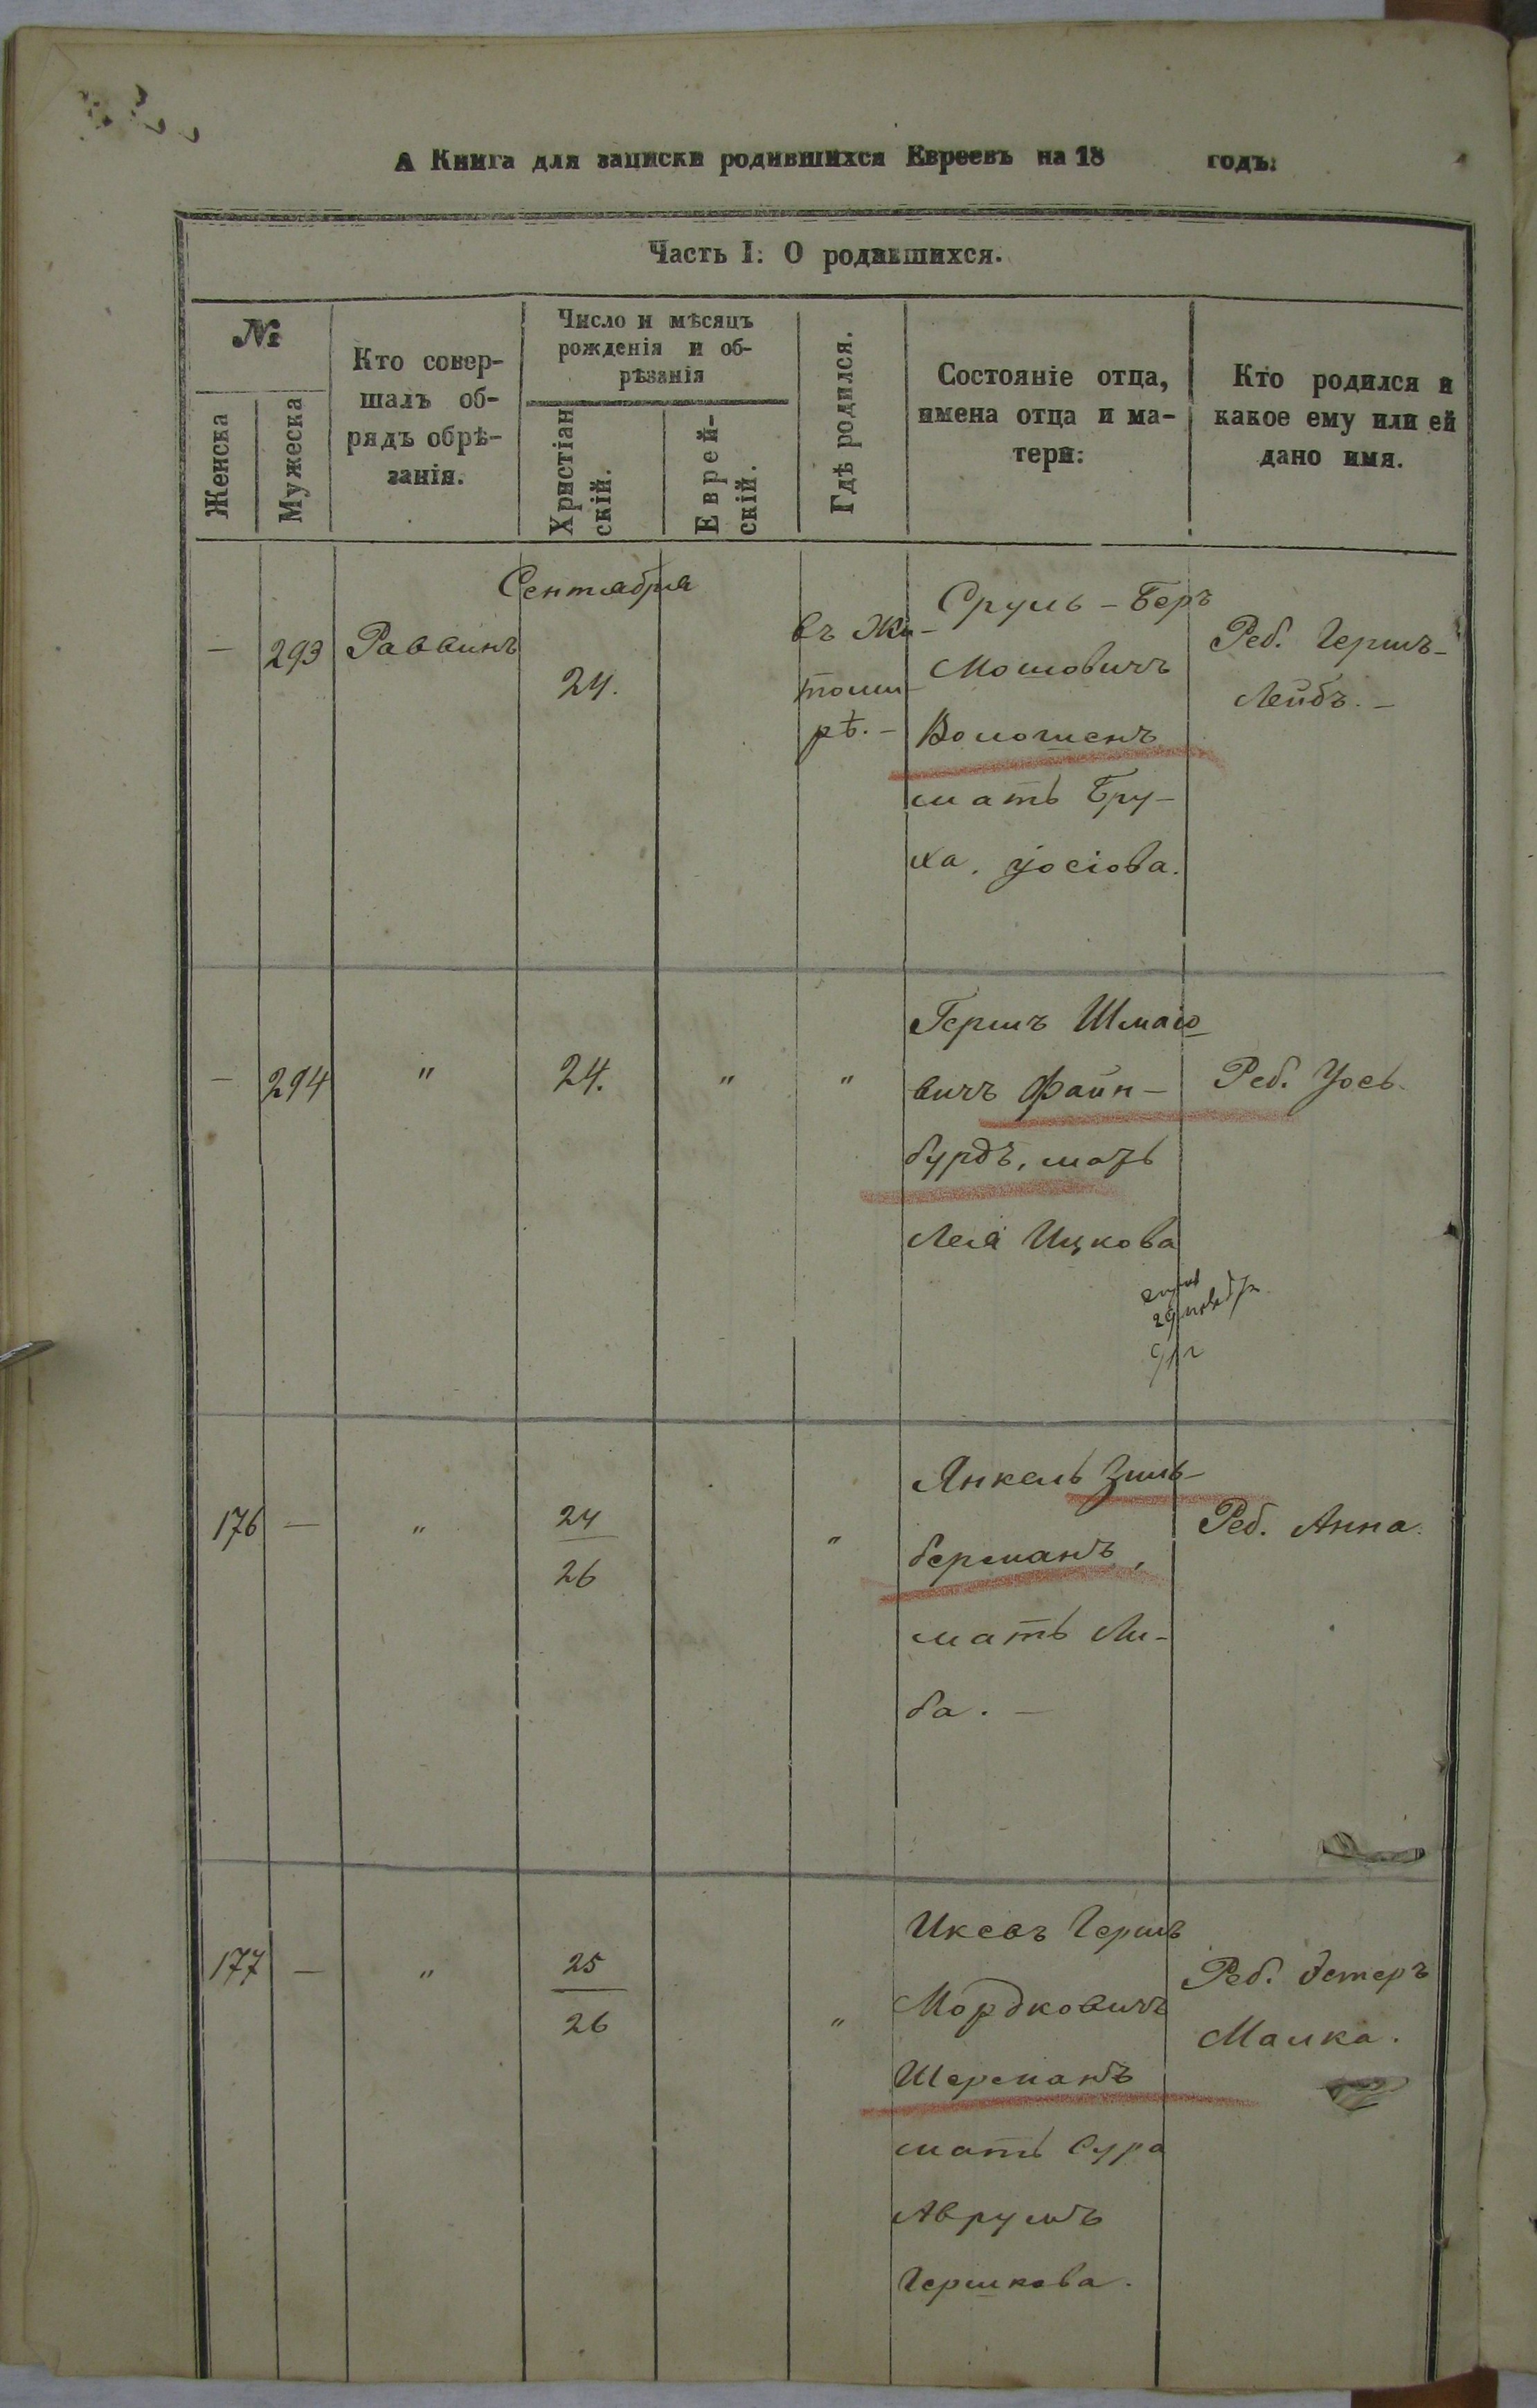 А Книга для записки родившихся Евреевъ на 18 годъ:
Часть I: О родившихся.
№
Женска
Мужеска
Кто совер-
шалъ об-
рядъ обрѣ-
занія.
Число и мѣсяцъ
рожденія и об-
рѣзанія
Христіан
скій.
Еврей-
скій.
Гдѣ родился.
Состояніе отца,
имена отца и ма-
тери:
Кто родился и
какое ему или ей
дано имя.
Сентября
— 293 Раввинъ
24.
въ Жи-
томи-
рѣ. —
Сруль - Беръ
Мошовичъ
Волошенъ
мать Бру-
ха. Іосіова.
Реб. Гершъ-
Лейбъ. —
— 294 " 24. " "
Гершъ Шмаіо-
вичъ Файн-
бурдъ, мать
Леіа Ицкова
Реб. Іось.
176 — "
24
26
"
Янкель Зиль-
берманъ,
мать Ли-
ба. —
Реб. Анна.
177 — "
25
26
"
Гершъ
Мордковичъ
Шерманъ
мать Сура
Аврумъ
Гершкова.
Реб. Эстеръ
Малка.